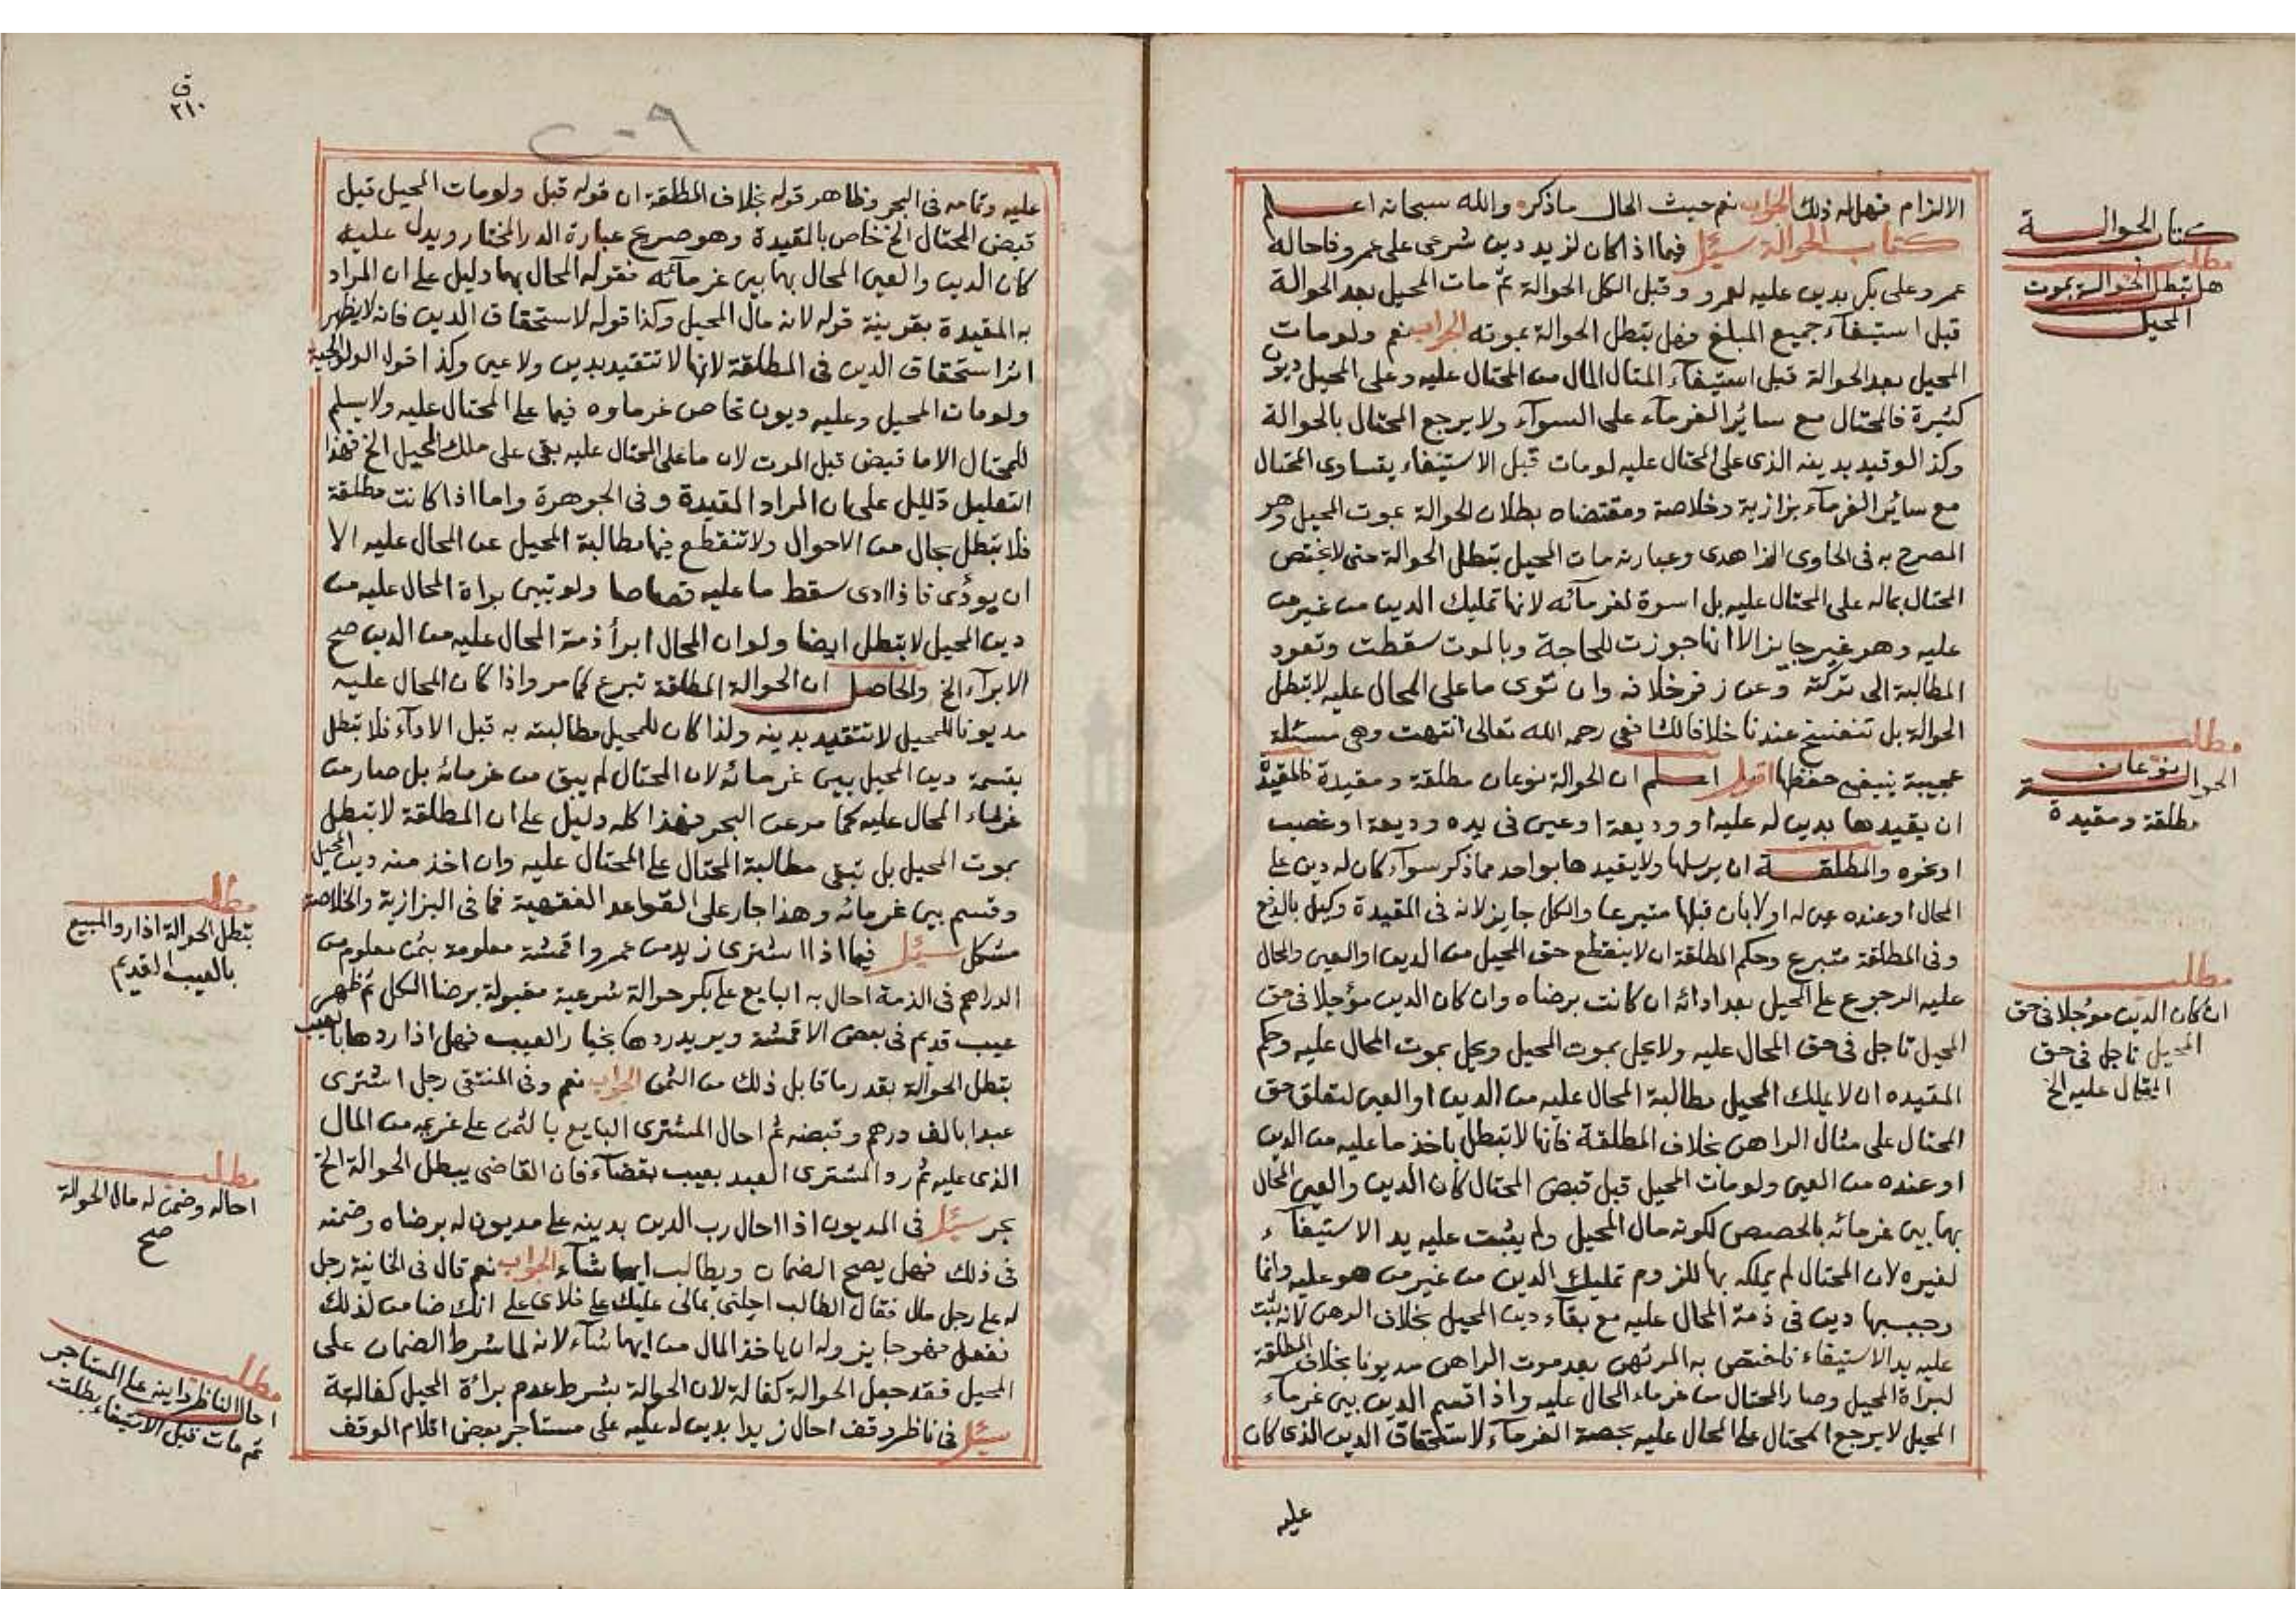 الالزام فهل له ذلك الجواب نعم حيث الحال ما ذكره والله سبحانه اعلم
كتاب الحوالة سئل فيما اذا كان لزيد دين شرعى على عمرو فاحاله
عمرو على بكر بدين عليه لعمرو وقبل الكل الحوالة ثم مات المحيل بعد الحوالة
قبل استيفآء جميع المبلغ فهل بتطل الحوالة بموته الجواب نعم ولو مات
المحيل بعد الحوالة قبل استيفآء المتال المال من المحتال عليه وعلى المحيل ديون
كثيرة فالمحتال مع سائر الغرمآء على السوآء ولا يرجع المحتال بالحوالة
وكذا لو قيد بدينه الذى على المحتال عليه لو مات قبل الاستيفاء يتساوى المحتال
مع سائر الغرمآء بزازية وخلاصة ومقتضاه بطلان الحوالة بموت المحيل وهو
المصرح به فى الحاوى الزاهدى وعبارته مات المحيل بتطل الحوالة حتى لا يختص
المحتال بماله على المحتال عليه بل اسوة لغرمآئه لانها تمليك الدين من غير من
عليه وهو غير جايز الا انها جوزت للحاجة وبالموت سقطت وتعود
المطالبة الى تركته وعن زفر خلافه وان توى ما على المحال عليه لا بتطل
الحوالة بل تنفسخ عندنا خلافا لك فعى رحمه الله تعالى انتهت وهى مسئلة
عجيبة ينبغى حفظها اقول اعلم ان الحوالة نوعان مطلقة ومقيدة فالمقيدة
ان يقيدها بدين له عليه او وديعة او عين فى يده وديعة او غصب
او نحوه والمطلقة ان يرسلها ولا يقيدها بواحد مما ذكر سوآء كان له دين على
المحال او عنده عين له او لا بان قبلها متبرعا والكل جايز لانه فى المقيدة وكيل بالدفع
وفى المطلقة متبرع وحكم المطلقة ان لا ينقطع حق المحيل من الدين او العين وللحال
عليه الرجوع على المحيل بعد ادائه ان كانت برضاه وان كان الدين مؤجلا فى حق
المحيل تاجل فى حق المحال عليه ولا يحل بموت المحيل ويحل بموت المحال عليه وحكم
المقيده ان لا يملك المحيل مطالبة المحال عليه من الدين او العين لتعلق حق
المحتال على مثال الراهن بخلاف المطلقة فانها لا بتطل باخذ ما عليه من الدين
او عنده من العين ولو مات المحيل قبل قبض المحتال كان الدين والعين المحال
بها بين غرمائه بالحصص لكونه مال المحيل ولم يثبت عليه يد الاستيفآء
لغيره لان المحتال لم يملكه بها للزوم تمليك الدين من غير من هو عليه وانما
وجب بها دين فى ذمة المحال عليه مع بقآء دين المحيل بخلاف الرهن لانه يثبت
عليه يد الاستيفاء فاختص به المرتهن بعد موت الراهن مديونا بخلاف المطلقة
لبراة المحيل وصار المحتال من غرماء المحال عليه واذا قسم الدين بين غرمآء
المحيل لا يرجع المحتال على المحال عليه بحصة الغرمآء لاستحقاق الدين الذى كان
عليه
كتاب الحوالة
مطلب
هل بتطل الحوالة بموت
المحيل
مطلب
الحوالة نوعان
مطلقة ومقيدة
مطلب
ان كان الدين مؤجلا فى حق
المحيل تاجل فى حق
المحتال عليه الخ
ق
٢١٠
٢٠٩
عليه وتمامه فى البحر وظاهر قوله بخلاف المطلقة ان قوله قبل ولو مات المحيل قبل
قبض المحتال الخ خاص بالمقيدة وهو صريح عبارة الدر المختار ويدل عليه
كان الدين والعين المحال بهما بين غرمآئه فقوله المحال بهما دليل على ان المراد
به المقيدة بقرينة قوله لانه مال المحيل وكذا قوله لاستحقاق الدين فانه لا يظهر
اثر استحقاق الدين فى المطلقة لانها لا تتقيد بدين ولا عين وكذا قول الولوالجية
ولو مات المحيل وعليه ديون تحاص غرماوه فيما على المحتال عليه ولا يسلم
للمحتال الا ما قبض قبل الموت لان ما على المحتال عليه بقى على ملك المحيل الخ فهذا
التعليل دليل على ان المراد المقيدة وفى الجوهرة واما اذا كانت مطلقة
فلا بتطل بحال من الاحوال ولا تنقطع فيها مطالبة المحيل عن المحال عليه الا
ان يؤدى فاذا ادى سقط ما عليه قصاصا ولو تبين براة المحال عليه من
دين المحيل لا بتطل ايضا ولو ان المحال ابرأ ذمة المحال عليه من الدين صح
الابرآء الخ والحاصل ان الحوالة المطلقة تبرع كما مر واذا كان المحال عليه
مديونا للمحيل لا تتقيد بدينه ولذا كان للمحيل مطالبته به قبل الادآء فلا بتطل
بقسمة دين المحيل بين غرمائه لان المحتال لم يبق من غرمائه بل صار من
غرماء المحال عليه كما مر عن البحر فهذا كله دليل على ان المطلقة لا بتطل
بموت المحيل بل تبقى مطالبة المحتال على المحتال عليه وان اخذ منه دين المحيل
وقسم بين غرمائه وهذا جار على القواعد الفقهية فما فى البزازية والخلاصة
مشكل سئل فيما اذا اشترى زيد من عمرو اقمشة معلومة بثمن معلوم من
الدراهم فى الذمة احال به البايع على بكر حوالة شرعية مقبولة برضا الكل ثم ظهر
عيب قديم فى بعض الاقمشة ويريد ردها بخيار العيب فهل اذا ردها بالعيب
بتطل الحوالة بقدر ما قابل ذلك من الثمن الجواب نعم وفى المنتقى رجل اشترى
عبدا بالف درهم وقبضه ثم احال المشترى البايع بالثمن على غريمه من المال
الذى عليه ثم رد المشترى العبد بعيب بقضآء فان القاضى يبطل الحوالة الخ
بحر سئل فى المديون اذا احال رب الدين بدينه على مديون له برضاه وضمنه
فى ذلك فهل يصح الضمان ويطالب ايهما شآء الجواب نعم قال فى الخانية رجل
له على رجل مال فقال الطالب احلنى بمالى عليك على فلان على انك ضامن لذلك
ففعل فهو جايز وله ان ياخذ المال من ايهما شآء لانه لما شرط الضمان على
المحيل فقد جعل الحوالة كفالة لان الحوالة بشرط عدم براة المحيل كفالة
سئل فى ناظر وقف احال زيدا بدين له عليه على مستاجر بعض اقلام الوقف
مطلب
بتطل الحوالة اذا رد المبيع
بالعيب القديم
مطلب
احاله وضمن له مال الحوالة
صح
مطلب
احال الناظر داينه على المستاجر
ثم مات قبل الاستيفاء بطلت